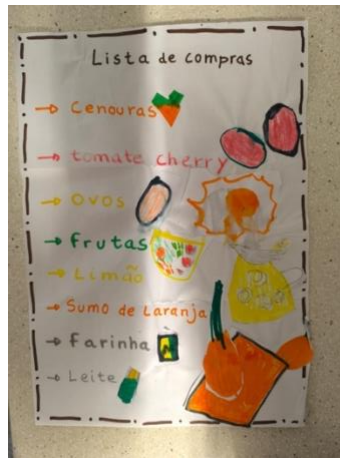 Lista de compras
→ Cenouras
→ tomate cherry
→ Ovos
→ frutas
→ Limão
→ Sumo de Laranja
→ farinha
→ Leite